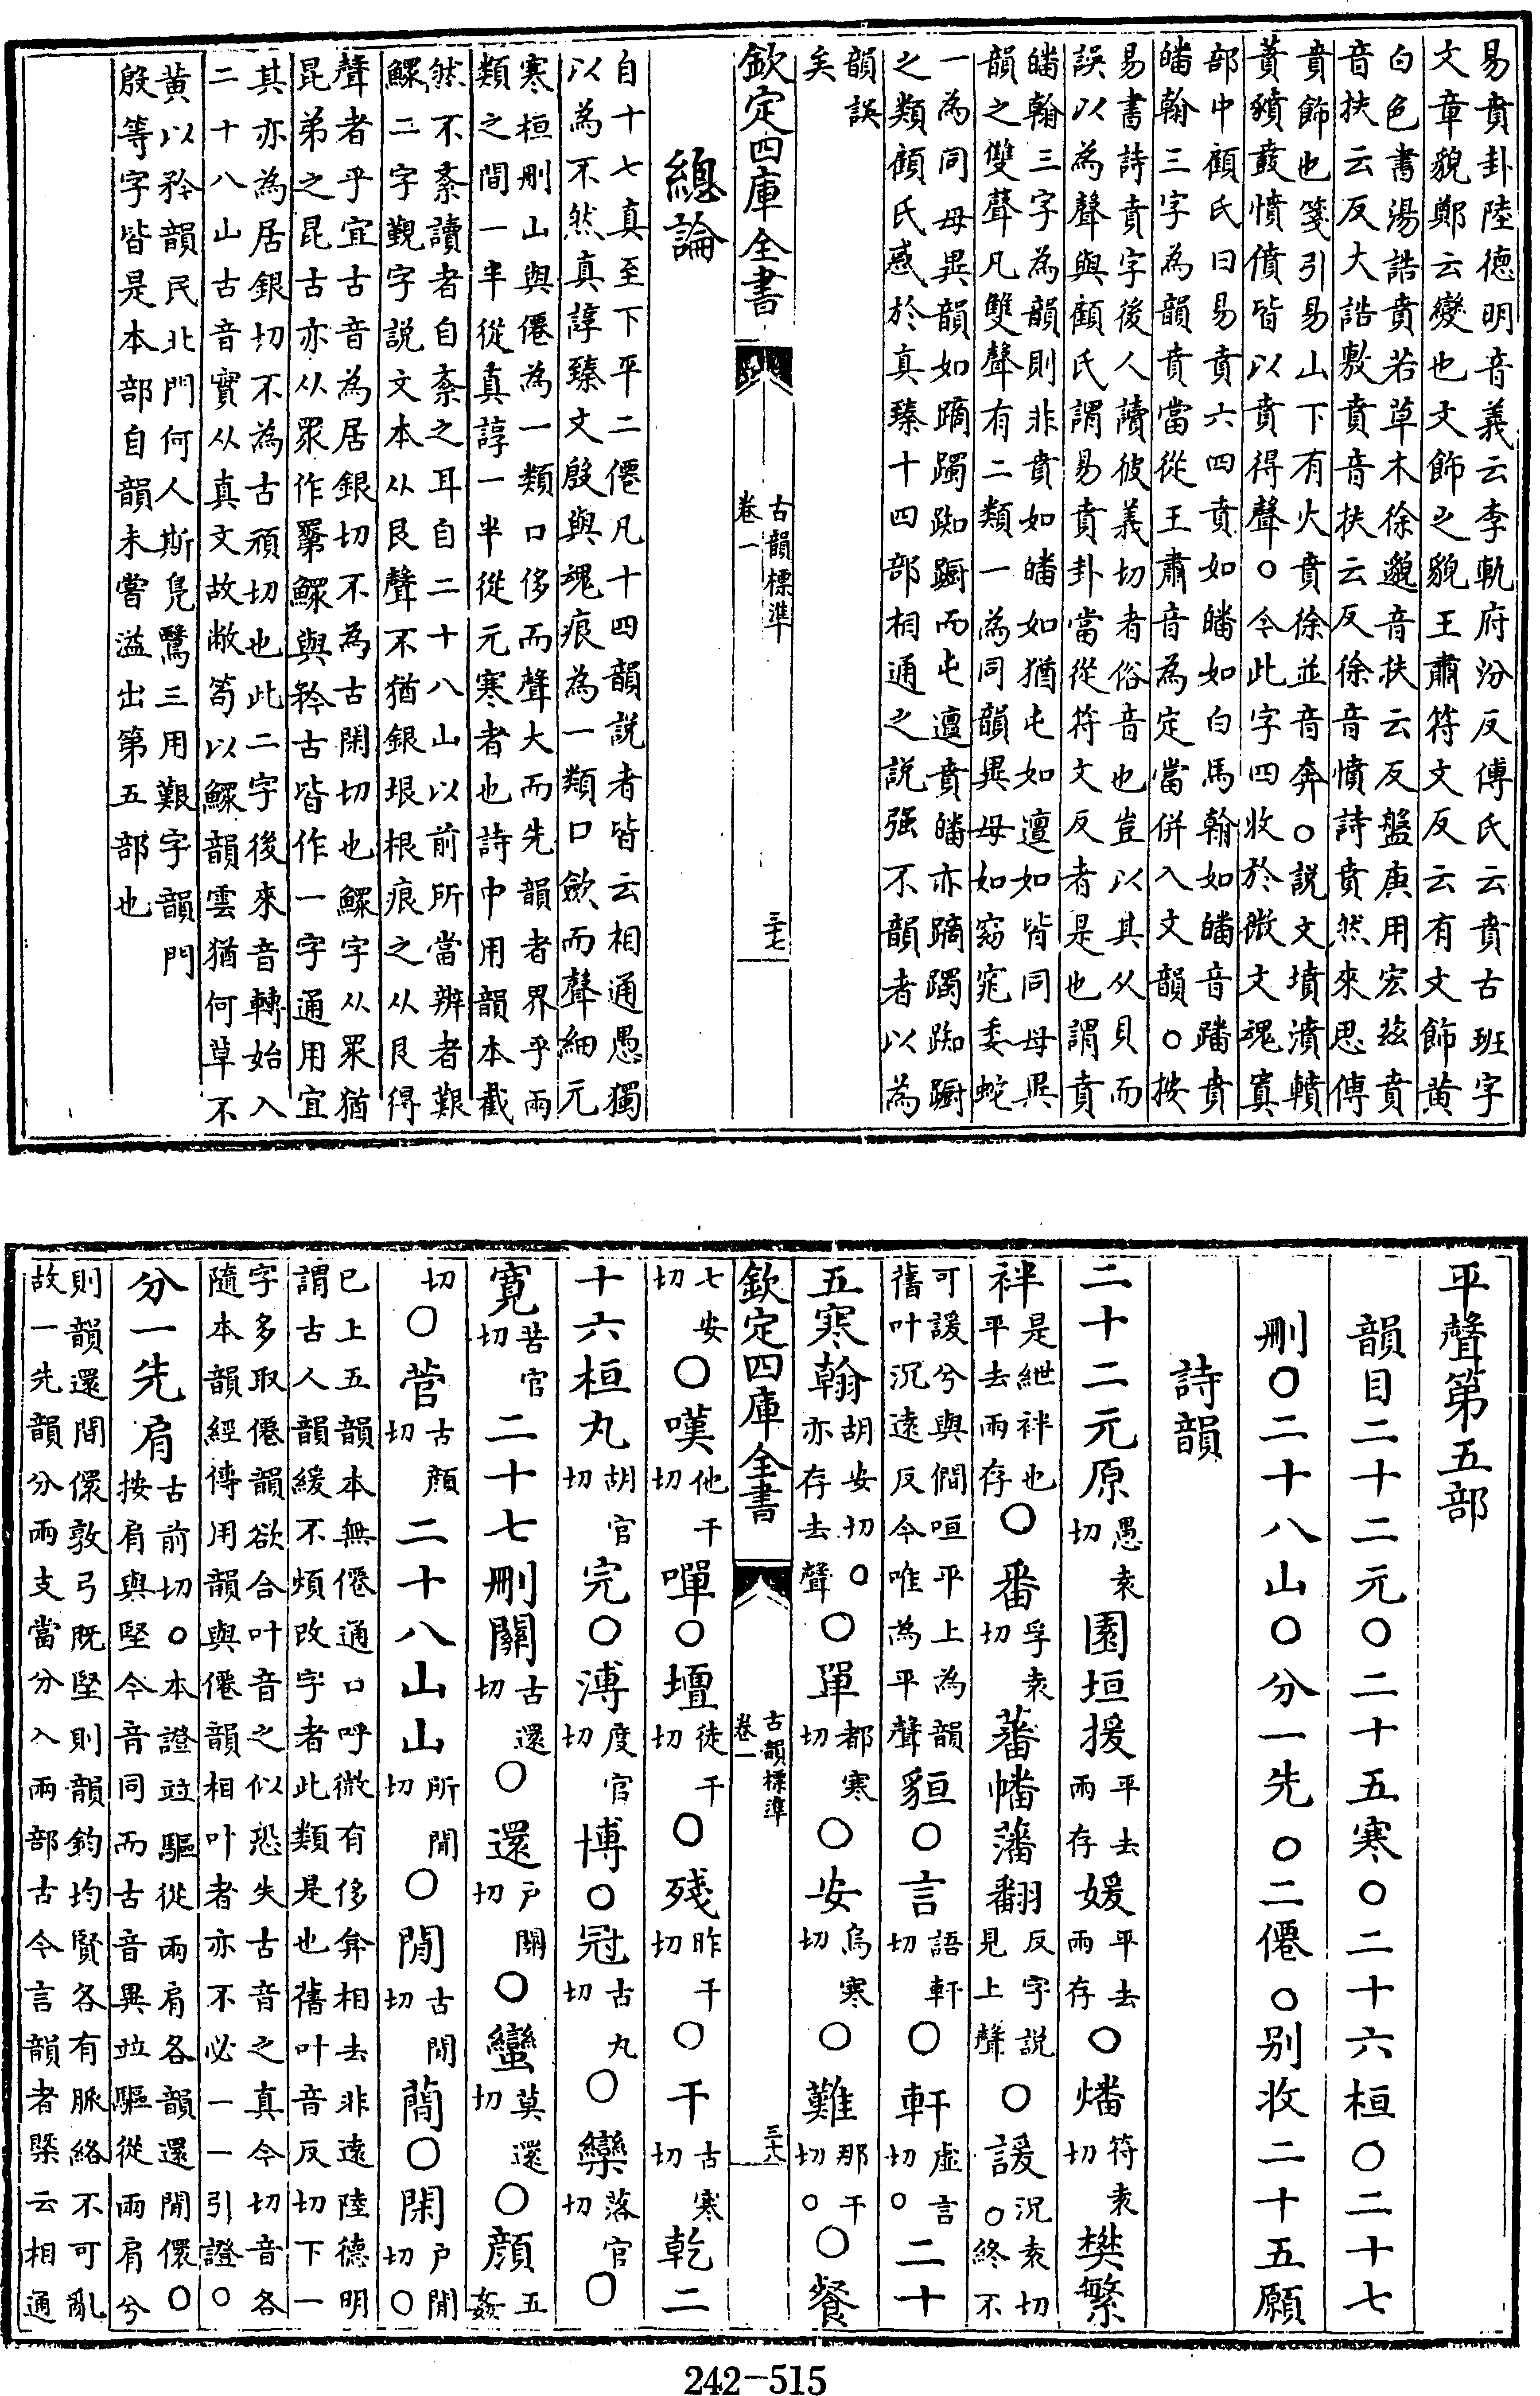 易賁卦陸德明音義云李軌府汾反傅氏云賁古班字
文章貌鄭云變也文飾之貌王肅符文反云有文飾黃
白色書湯誥賁若草木徐邈音扶云反盤庚用宏兹賁
音扶云反大誥敷賁音扶云反徐音憤詩賁然來思傅
賁飾也箋引易山下有火賁徐並音奔○説文墳濆轒
蕡豶鼖憤僨皆以賁得聲○今此字四收於微文魂寘
部中顧氏曰易賁六四賁如皤如白馬翰如皤音蹯賁
皤翰三字為韻賁當從王肅音為定當併入文韻○按
易書詩賁字後人讀彼義切者俗音也豈以其从貝而
誤以為聲與顧氏謂易賁卦當從符文反者是也謂賁
皤翰三字為韻則非賁如皤如猶屯如邅如皆同母異
韻之雙聲凡雙聲有二類一為同韻異母如窈窕委蛇
一為同母異韻如蹢躅踟蹰而屯邅賁皤亦蹢躅踟蹰
之類顧氏惑於真臻十四部相通之説强不韻者以為
韻誤
矣
欽定四庫全書
古韻標準
卷一
三十七
總論
自十七真至下平二僊凡十四韻説者皆云相通愚獨
以為不然真諄臻文殷與魂痕為一類口斂而聲細元
寒桓刪山與僊為一類口侈而聲大而先韻者界乎兩
類之間一半從真諄一半從元寒者也詩中用韻本截
然不紊讀者自紊之耳自二十八山以前所當辨者艱
鰥二字觀字説文本从艮聲不猶銀垠根痕之从艮得
聲者乎宜古音為居銀切不為古閑切也鰥字从眔猶
昆弟之昆古亦从眔作䍚鰥與矜古皆作一字通用宜
其亦為居銀切不為古頑切也此二字後來音轉始入
二十八山古音實从真文故敝笱以鰥韻雲猶何草不
黃以矜韻民北門何人斯鳧鷖三用艱字韻門
殷等字皆是本部自韻未嘗溢出第五部也
平聲第五部
韻目二十二元○二十五寒○二十六桓○二十七
刪○二十八山○分一先○二僊○别收二十五願
詩韻
二十二元原愚袁切園垣援平去兩存媛平去兩存○燔符袁切樊繁
袢是紲袢也平去兩存○番孚袁切蕃幡藩翻反字説見上聲○諼況袁切○終不
可諼兮與僩咺平上為韻
舊叶沉遠反今唯為平聲貆○言語軒切○軒虛言切○二十
五寒翰胡安切○亦存去聲○單都寒切○安烏寒切○難那干切○○餐
欽定四庫全書
古韻標準
卷一
三十八
七安切○嘆他干切嘽○壇徒干切○殘昨干切○干古寒切乾二
十六桓丸胡官切完○漙度官切博○冠古丸切○欒落官切○
寬苦官切二十七刪關古還切○還户關切○蠻莫還切○顔五姦
切○菅古顔切二十八山山所閒切○閒古閒切蕳○閑户閒切○
已上五韻本無僊通口呼微有侈弇相去非遠陸德明
謂古人韻緩不煩改字者此類是也舊叶音反切下一
字多取僊韻欲合叶音之似恐失古音之真今切音各
隨本韻經傳用韻與僊韻相叶者亦不必一一引證○
分一先肩古前切○本證並驅從兩肩各韻還閒儇○
按肩與堅今音同而古音異並驅從兩肩兮
則韻還閒儇敦弓既堅則韻鈞均賢各有脈絡不可亂
故一先韻分兩支當分入兩部古今言韻者槩云相通
242-515